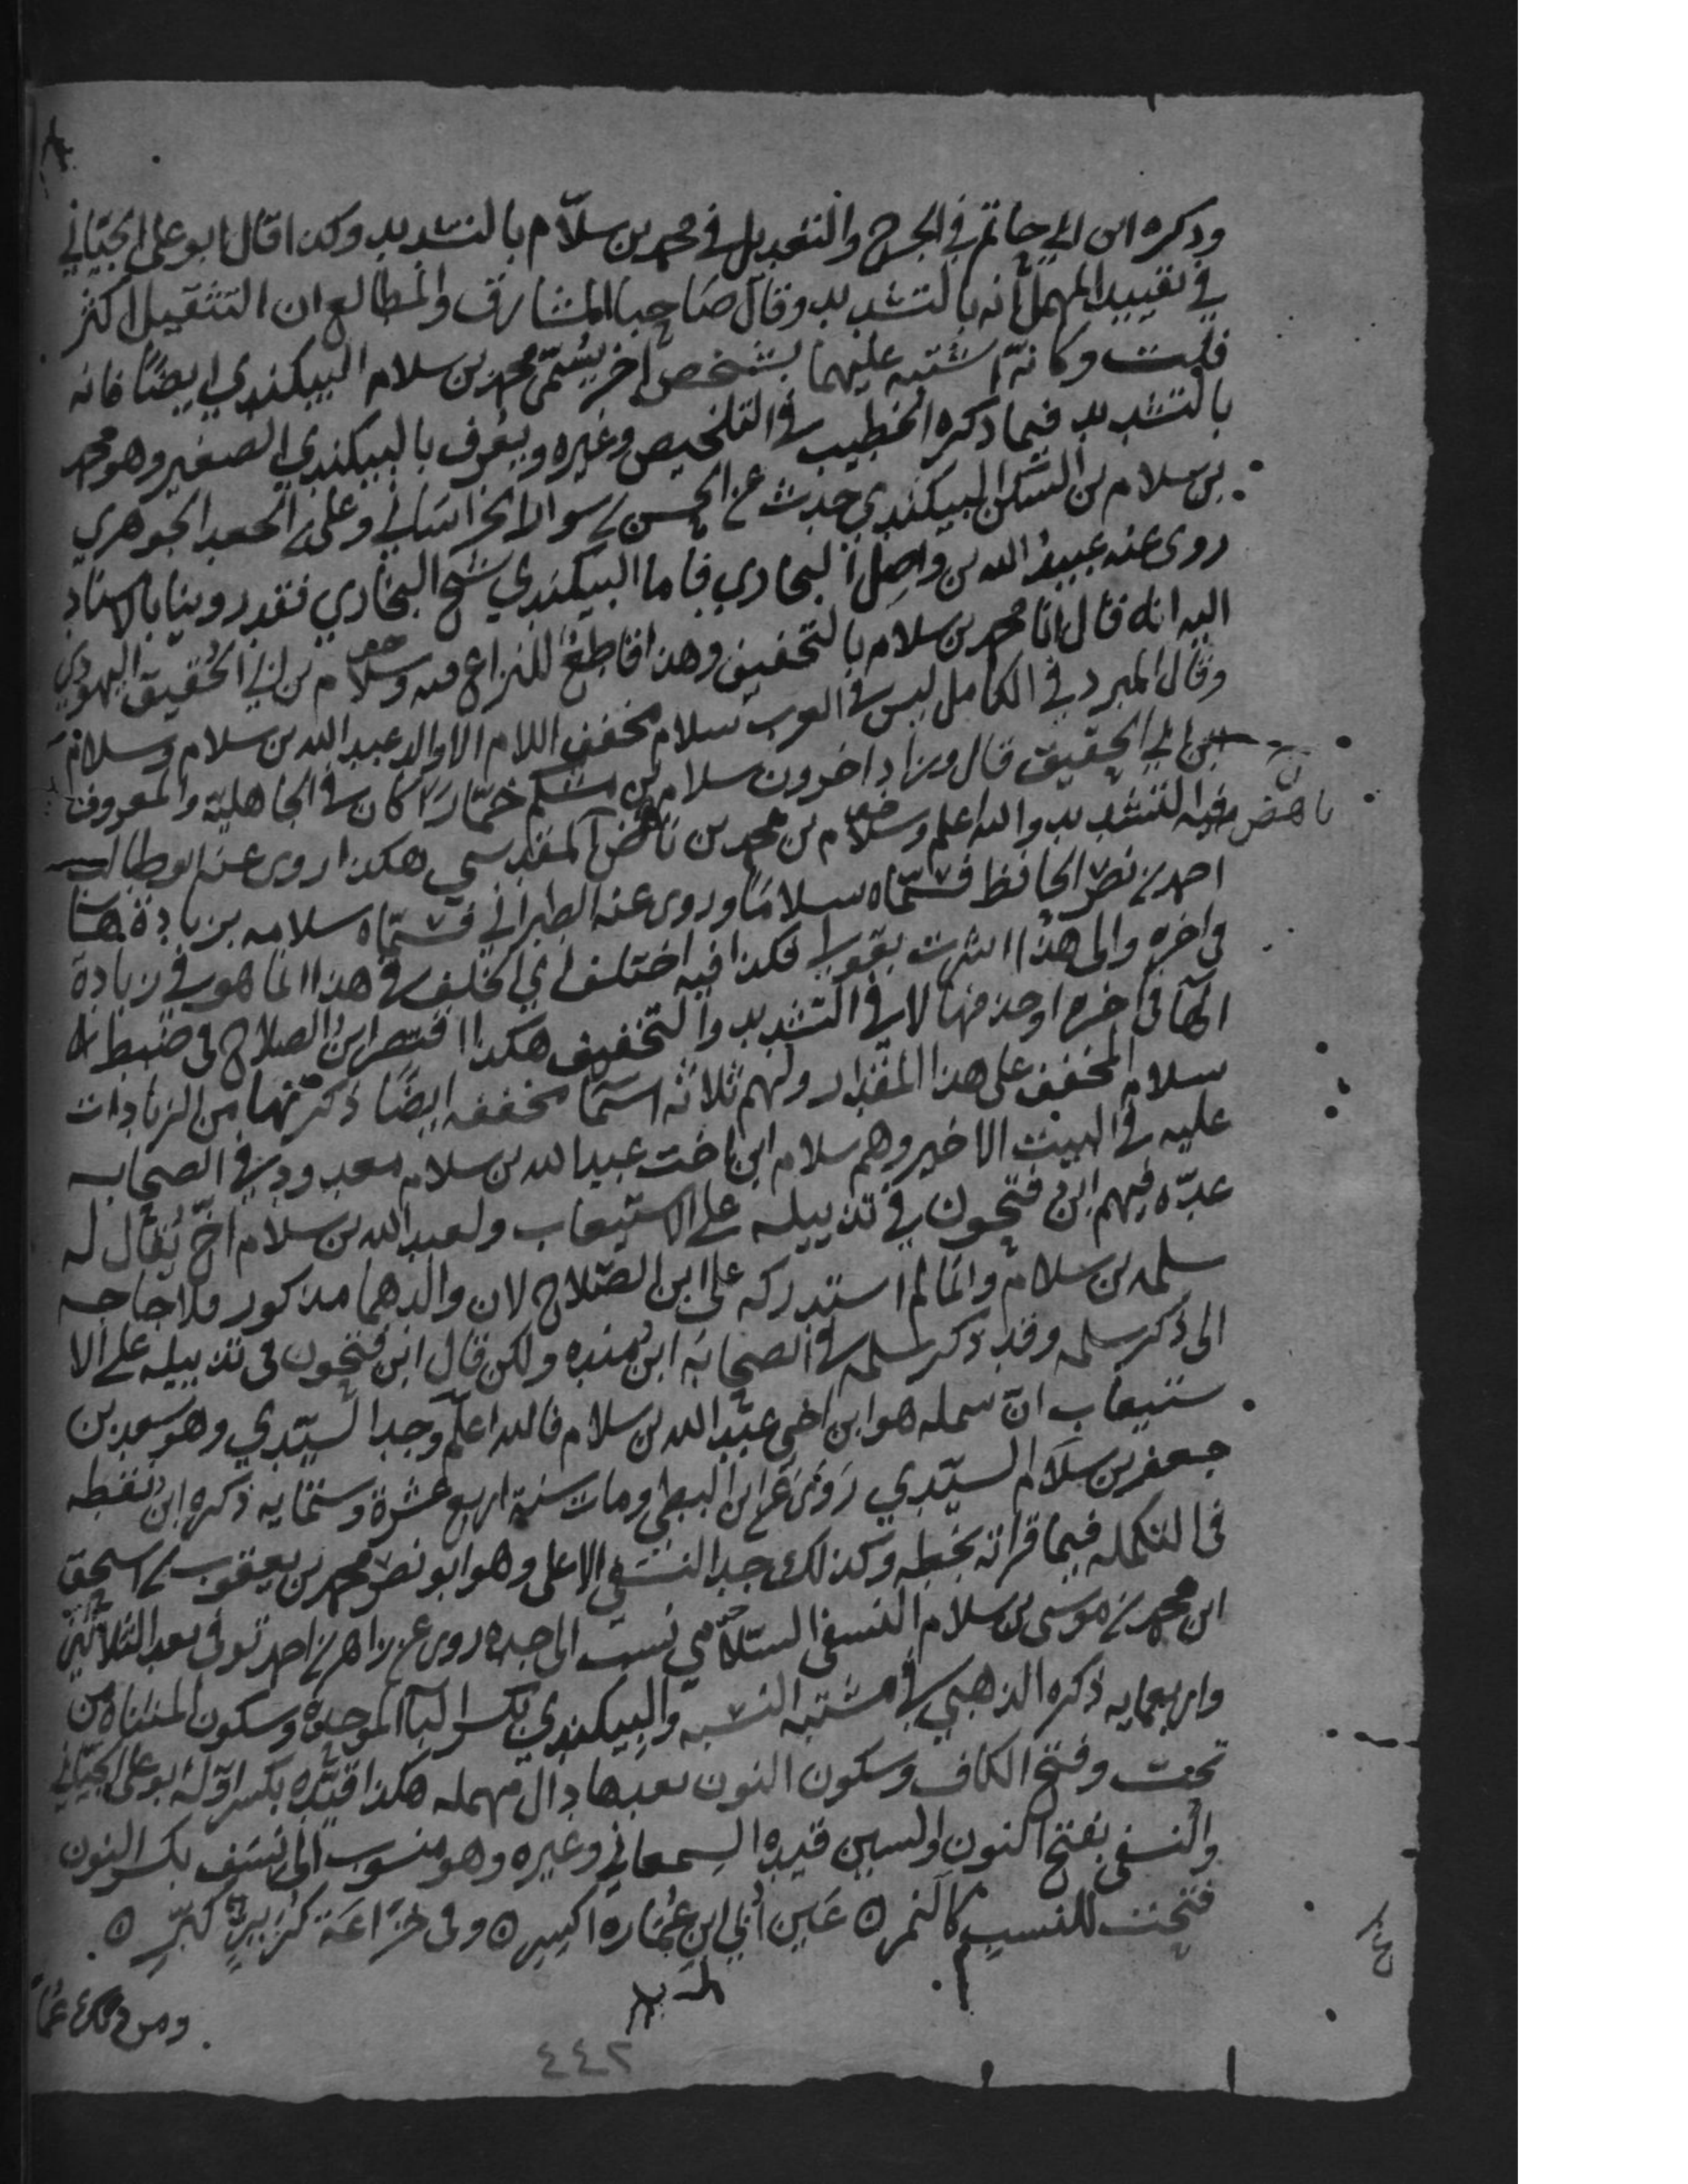 وذكره ابن ابي حاتم في الجرح والتعديل في محمد بن سلّام بالتشديد وكذا قال ابو علي الجيّاني
في تقييد المهمل انه بالتشديد وقال صاحب المشارق والمطالع ان التثقيل اكثر
قلت وكانه اشتبه عليهما بشخص اخر يسمّى محمد بن سلام البيكندي ايضًا فانه
بالتشديد فيما ذكره الخطيب في التلخيص وغيره ويعرف بالبيكندي الصغير وهو محمد
بن سلام بن السكن البيكندي حدث عن الحسن بن سوار الخراساني وعلي بن الجعد الجوهري
روى عنه عبيد الله بن واصل البخاري فاما البيكندي شيخ البخاري فقد روينا بالاسناد
اليه انه قال انا محمد بن سلام بالتخفيف وهذا قاطع للنزاع فيه وسلام بن ابي الحُقيق اليهودي
وقال المبرد في الكامل ليس في العرب سلام مخفف اللام الا والد عبد الله بن سلام وسلام
بن ابي الحقيق قال وزاد اخرون سلام بن مشكم خمّارًا كان في الجاهلية والمعروف
فيه التشديد والله اعلم وسلام بن محمد بن ناهض المقدسي هكذا روى عنه ابو طالب
ناهض
احمد بن نصر الحافظ فسمّاه سلامًا وروى عنه الطبراني فسمّاه سلامه بزيادة هاء
في اخره والى هذا اشرت بقولي فكذا فيه اختلف اي الخلف في هذا انما هو في زيادة
الهآ في اخره او حذفها لا في التشديد والتخفيف هكذا اقتصر ابن الصلاح في ضبط
سلام المخفف على هذا المقدار ولهم ثلاثة اسما مخففه ايضًا ذكرتها من الزيادات
عليه في البيت الاخير وهم سلام ابن اخت عبد الله بن سلام معدود في الصحابه
عدّه فيهم ابن فتحون في تذييله على الاستيعاب ولعبد الله بن سلام اخ يُقال له
سلمه بن سلام وانما لم استدركه على ابن الصّلاح لان والدهما مذكور فلا حاجه
الى ذكر سلمه وقد ذكر سلمه في الصحابه ابن منده ولكن قال ابن فتحون في تذييله على الا
ستيعاب ان سلمه هو ابن اخي عبد الله بن سلام فالله اعلم وجد السيّدي وهو سعد بن
جعفر بن سلام السيّدي روى عن ابن البطي ومات سنة اربع عشرة وستمايه ذكره ابن نقطه
في التكمله فيما قراته بخطه وكذلك جد النسفي الاعلى وهو ابو نصر محمد بن يعقوب بن اسحق
ابن محمد بن موسى بن سلام النسفي السلامي نسب الى جده روى عن زاهر بن احمد توفي بعد الثلاثين
واربعمايه ذكره الذهبي في مشتبه النسبه والبيكندي بكسر البآ الموحده وسكون المثناه من
تحت وفتح الكاف وسكون النون بعدها دال مهمله هكذا قيّده بكسر اوّله ابو علي الجيّاني
والنسفي بفتح النون والسين قيده السمعاني وغيره وهو منسوب الى نسف بكسر النون
فتحت للنسب كالنمر ه عَين اُبي ابن عُمَاره اكسر ه وفي خزاعَة كَرِيز كبّر ه
٤٤٢